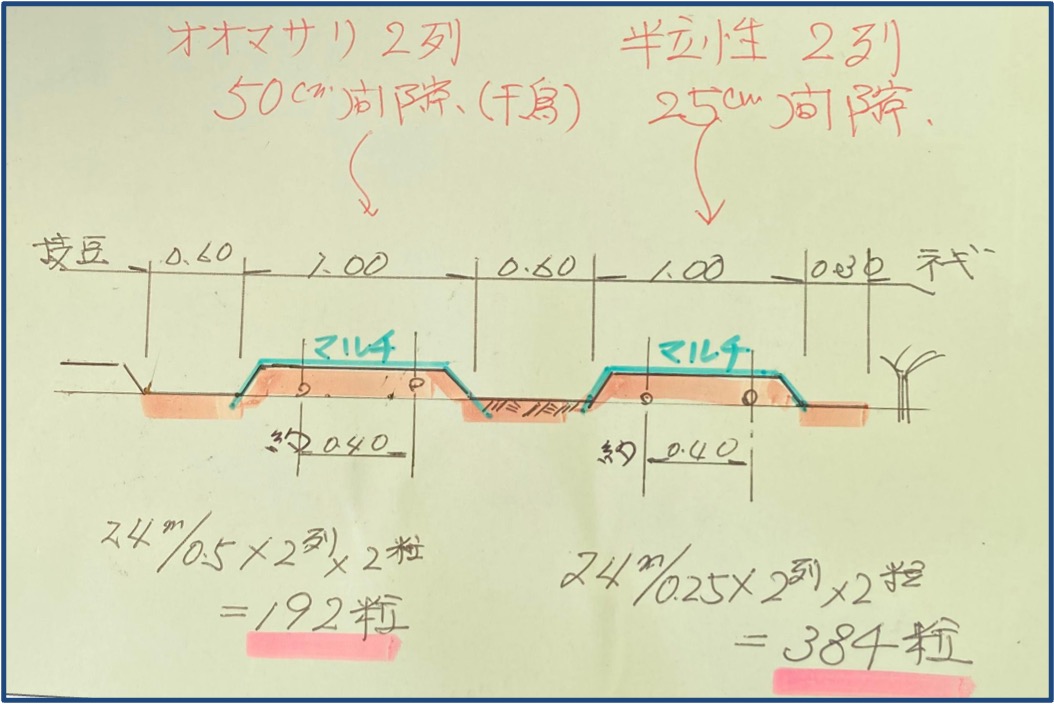 オオマサリ 2列
50cm間隙、(千鳥)
半立性 2列
25cm間隙.
枝豆 0.60 1.00 0.60 1.00 0.30 ネギ
マルチ マルチ
約 0.40 約 0.40
24m/0.5×2列×2粒
=192粒
24m/0.25×2列×2粒
=384粒